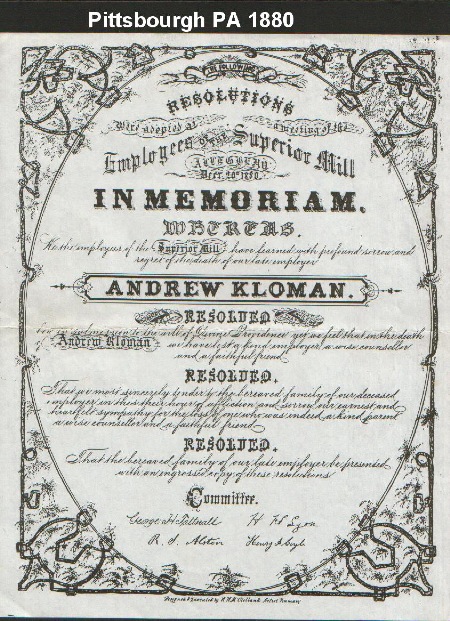 Pittsbourgh PA 1880
THE FOLLOWING
RESOLUTIONS
Were adopted at a meeting of the
Employees of the Superior Mill
ALLEGHENY
Decr. 20th 1880.
IN MEMORIAM.
WHEREAS.
We the employees of the Superior Mill have learned with profound sorrow and
regret of the death of our late employer
ANDREW KLOMAN.
RESOLVED
in submission to the will of Divine Providence yet we feel that in the death
of Andrew Kloman we have lost a kind employer, a wise counsellor
and a faithful friend
RESOLVED.
That we most sincerely tender the bereaved family of our deceased
employer in this their hour of affliction and sorrow our earnest and
heartfelt sympathy for the loss of one who was indeed a kind parent
a wise counsellor and a faithful friend
RESOLVED.
That the bereaved family of our late employer be presented
with an engrossed copy of these resolutions
Committee.
George H H Lyon
R. S. Alston Henry
Designed & Executed by